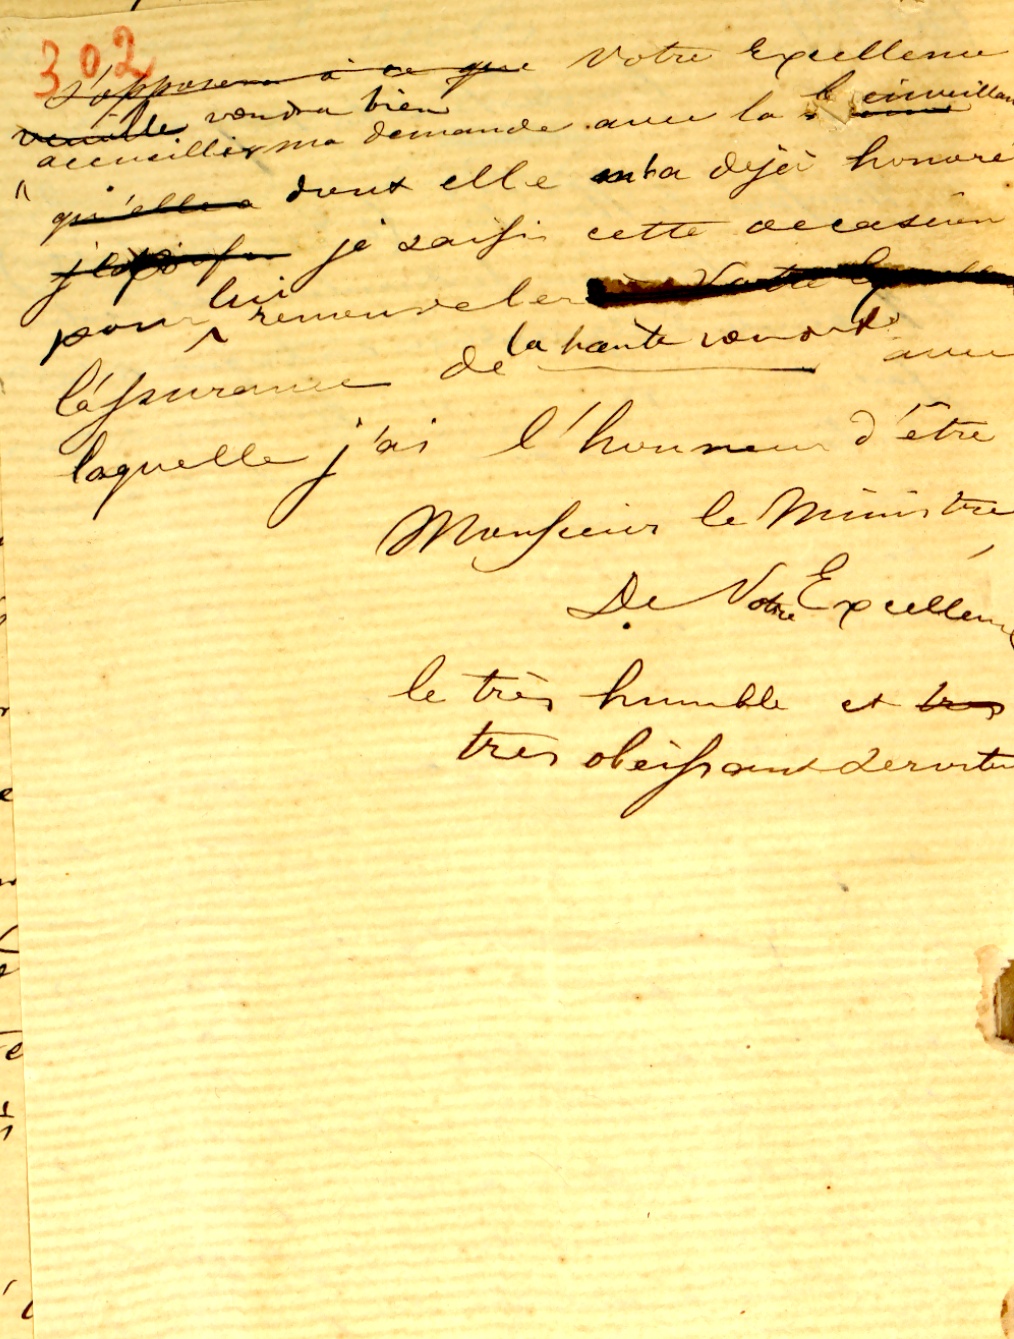 302
s'opposera à ce que Votre Excellence
veuille voudra bien
accueillir ma demande avec la bienveillan
qu'elle a dont elle m'a déjà honoré
je saisis cette occasion
pour lui renouveler à Votre
l'assurance de la haute avec
laquelle j'ai l'honneur d'être
Monsieur le Ministre
De Votre Excellence
le très humble et très
très obéissant serviteu